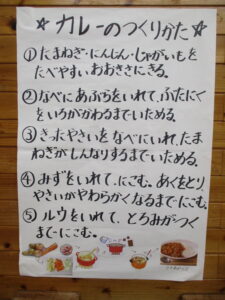 ☆カレーのつくりかた☆
①たまねぎ・にんじん・じゃがいもを
たべやすい、おおきさにきる。
②なべにあぶらをいれて、ぶたにく
をいろがかわるまでいためる。
③きったやさいをなべにいれ、たま
ねぎがしんなりするまでいためる。
④みずをいれて、にこむ。あくをとり、
やさいがやわらかくなるまでにこむ。
⑤ルウをいれて、とろみがつく
までにこむ。